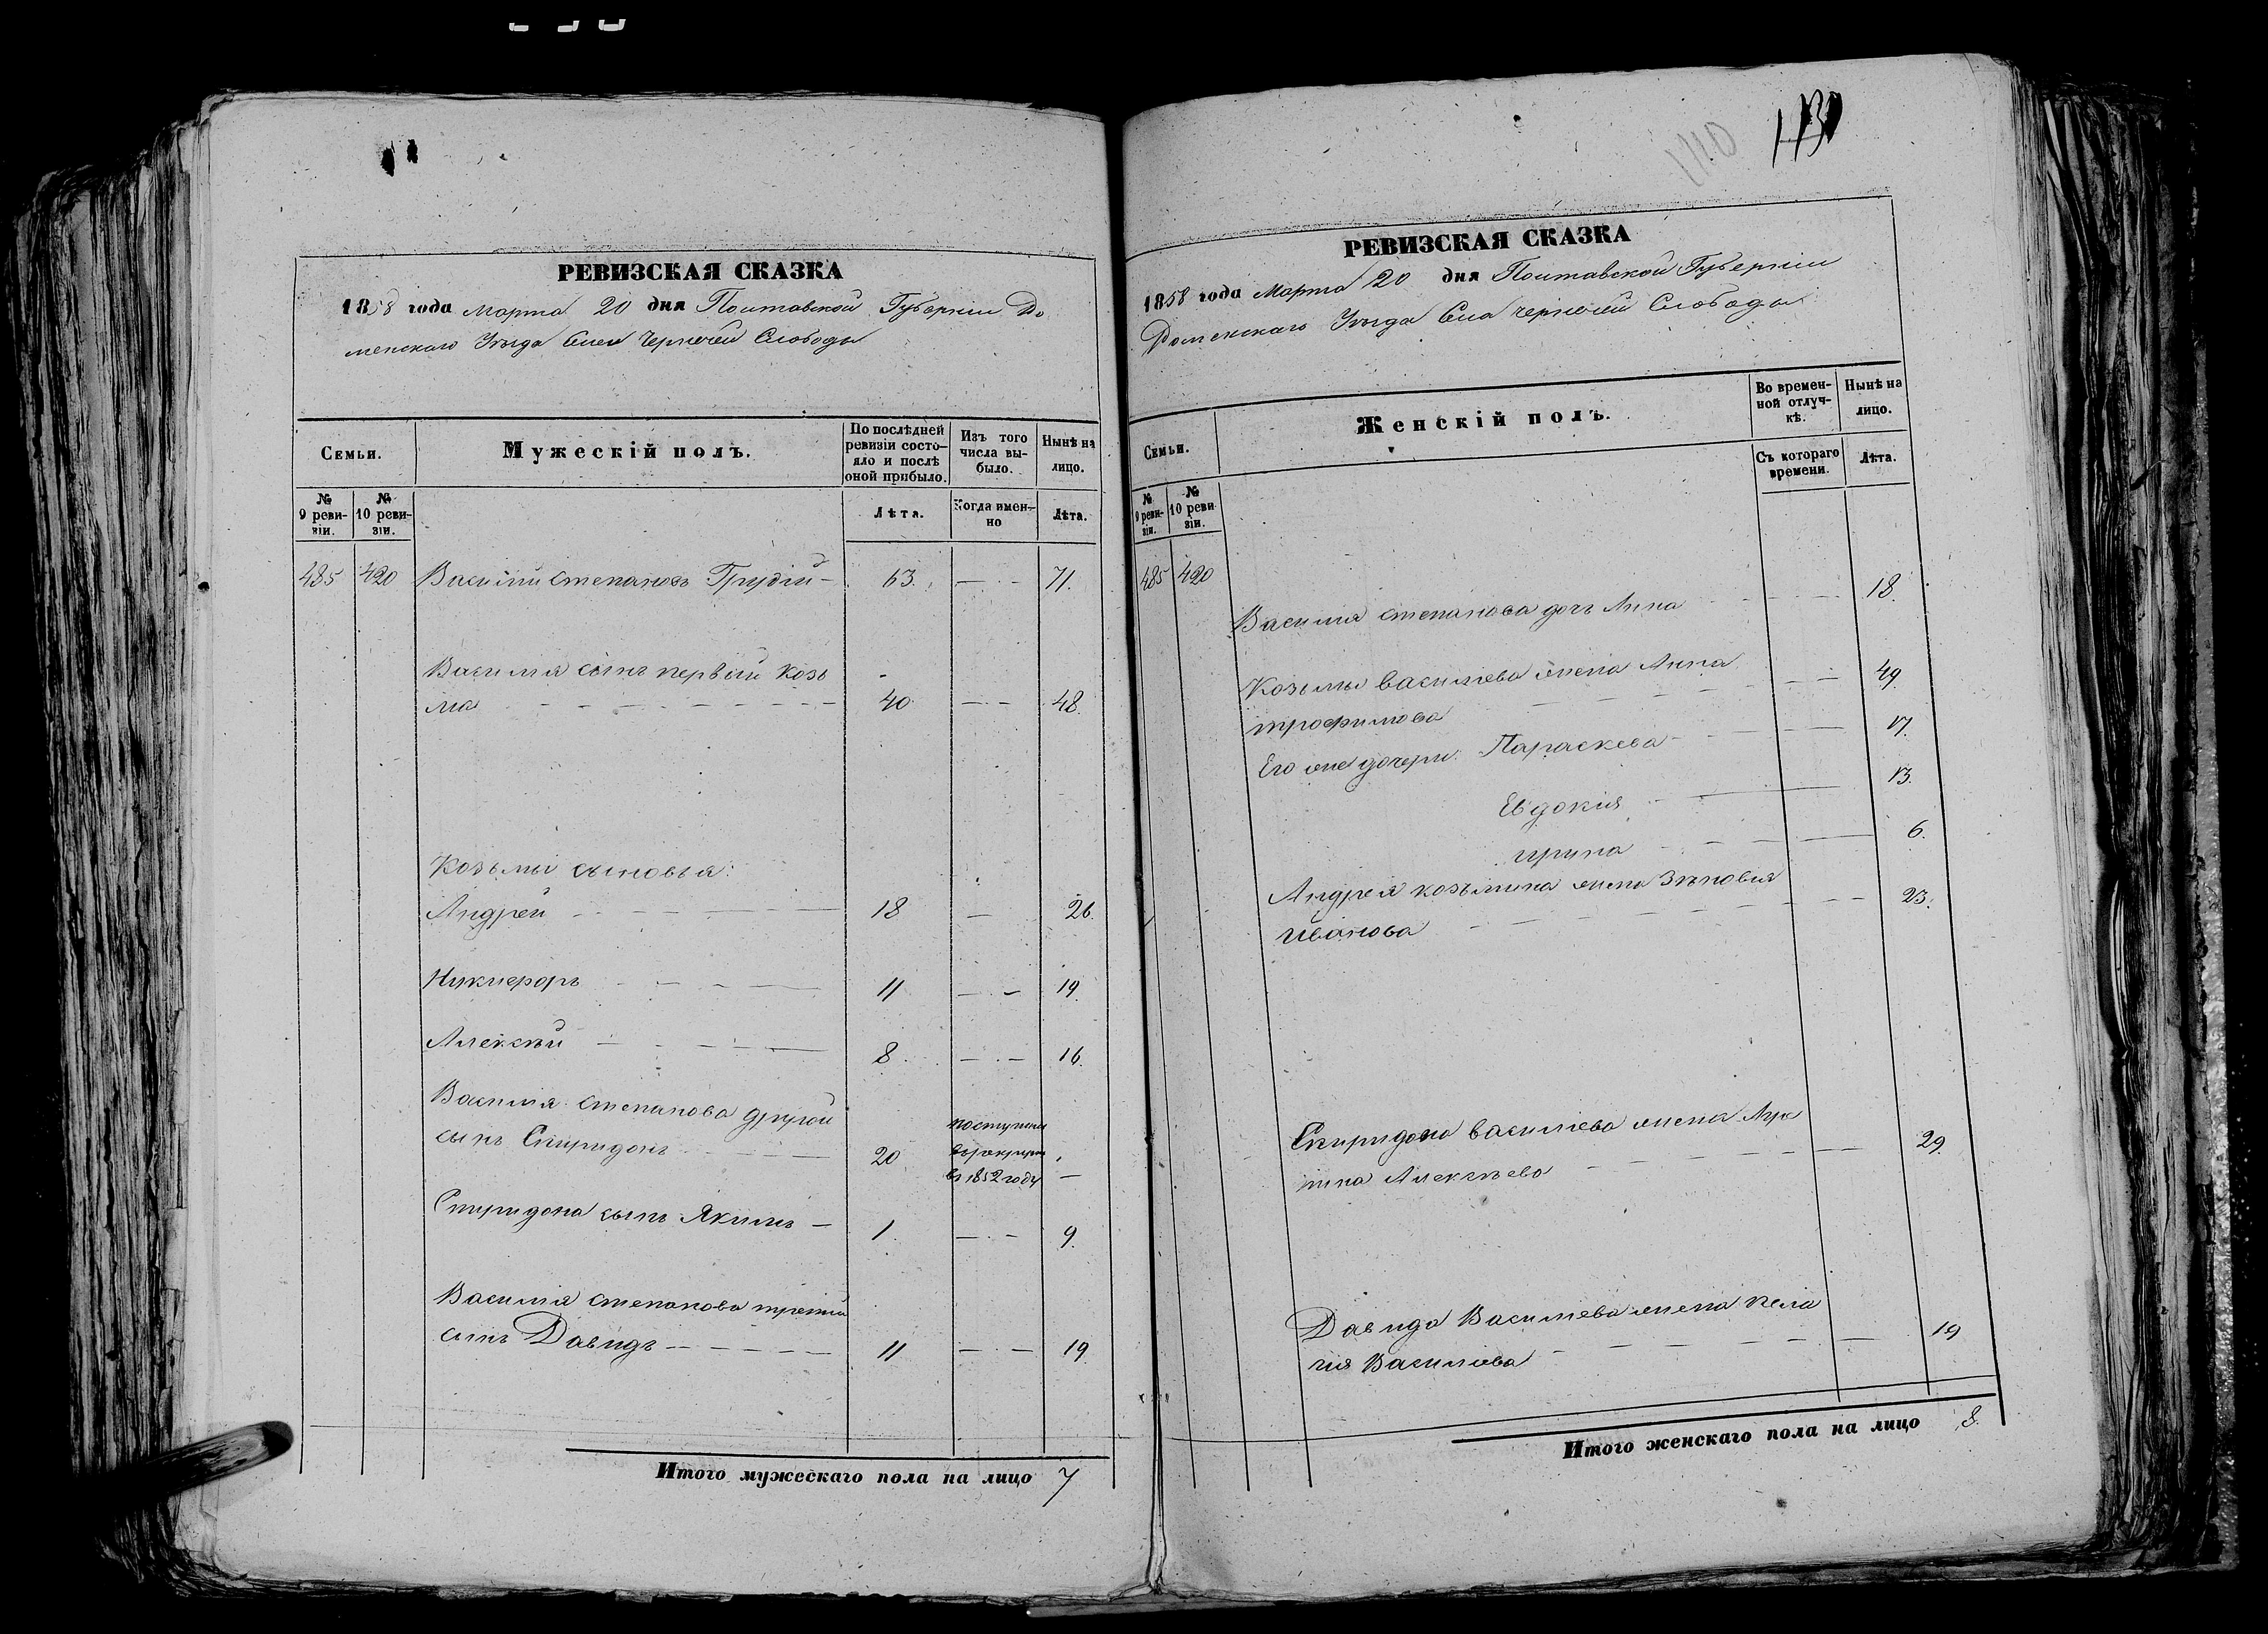 РЕВИЗСКАЯ СКАЗКА
1858 года Марта 20 дня Полтавской Губерніи Ро
менскаго Уѣзда Села Чернечей Слободы
Семьи.
Мужескій полъ.
По послѣдней ревизіи состояло и послѣ оной прибыло.
Изъ того числа выбыло.
Нынѣ на лицо.
№ 9 ревизіи.
№ 10 ревизіи.
Лѣта.
Когда именно
Лѣта.
485 420 Василій Степановъ Грудій — 63. — 71.
Василія сынъ первый Козь
ма — 40. — 48.
Козьмы сыновья:
Андрей — 18 — 26.
Никифоръ — 11 — 19.
Алексѣй — 8. — 16.
Василія Степанова другой
сынъ Спиридонъ — 20 поступилъ
въ рекруты
въ 1852 году —
Спиридона сынъ Якимъ — 1. — 9.
Василія Степанова третій
сынъ Давидъ — 11 — 19.
Итого мужескаго пола на лицо 7
130
РЕВИЗСКАЯ СКАЗКА
1858 года Марта 20 дня Полтавской Губерніи
Роменскаго Уѣзда Села Чернечей Слободы
Семьи.
Женскій полъ.
Во временной отлучкѣ.
Нынѣ на лицо.
Съ котораго времени.
Лѣта.
№ 9 ревизіи.
№ 10 ревизіи.
485 420
Василія Степанова дочь Анна — 18.
Козьмы Васильева жена Анна
Трофимова — 49.
Его же дочери: Параскева — 17.
Евдокія — 13.
Ирина — 6.
Андрея Козьмина жена Зѣновія
Иванова — 23.
Спиридона Васильева жена
Алексѣева — 29.
Давида Васильева жена Пела
гія Васильева — 19
Итого женскаго пола на лицо 8.